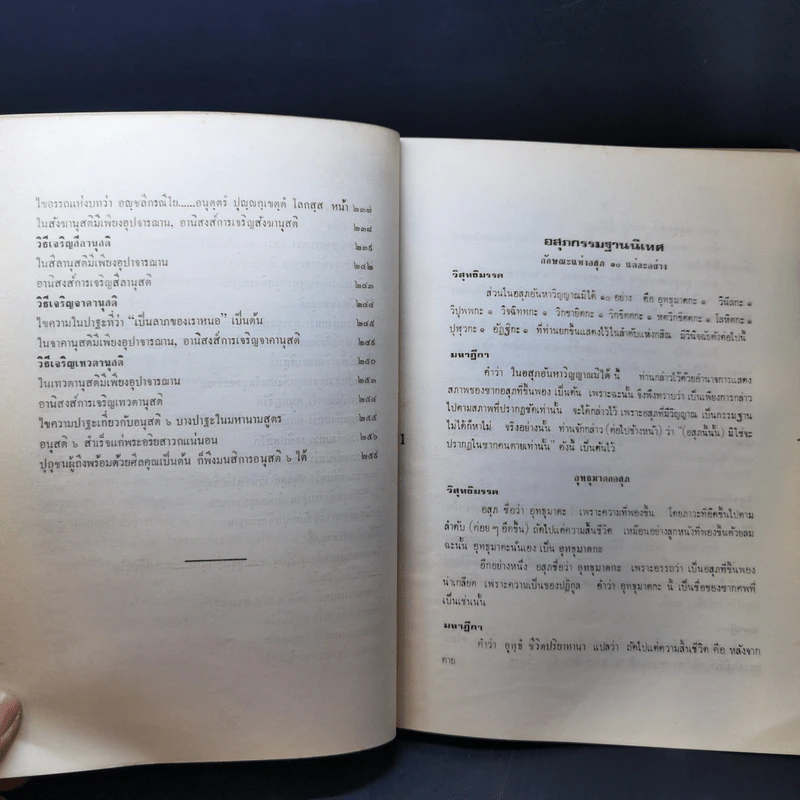 ไขอรรถแห่งบทว่า อญฺชลิกรณีโย......อนุตฺตรํ ปุญฺญกฺเขตฺตํ โลกสฺส หน้า ๒๓๗
ในสังฆานุสติมีเพียงอุปจารฌาน, อานิสงส์การเจริญสังฆานุสติ ๒๓๘
วิธีเจริญสีลานุสติ ๒๓๙
ในสีลานุสติมีเพียงอุปจารฌาน ๒๔๒
อานิสงส์การเจริญสีลานุสติ ๒๔๓
วิธีเจริญจาคานุสติ ๒๔๔
ไขความในปาฐะที่ว่า “เป็นลาภของเราหนอ” เป็นต้น ๒๔๕
ในจาคานุสติมีเพียงอุปจารฌาน, อานิสงส์การเจริญจาคานุสติ ๒๔๙
วิธีเจริญเทวตานุสติ ๒๕๐
ในเทวตานุสติมีเพียงอุปจารฌาน ๒๕๓
อานิสงส์การเจริญเทวตานุสติ ๒๕๔
ไขความปาฐะเกี่ยวกับอนุสติ ๖ บางปาฐะในมหานามสูตร ๒๕๕
อนุสติ ๖ สำเร็จแก่พระอริยสาวกแน่นอน ๒๕๖
ปุถุชนผู้ถึงพร้อมด้วยศีลคุณเป็นต้น ก็พึงมนสิการอนุสติ ๖ ได้ ๒๕๙
อสุภกรรมฐานนิเทศ
ลักษณะแห่งอสุภ ๑๐ แต่ละอย่าง
วิสุทธิมรรค
ส่วนในอสุภอันหาวิญญาณมิได้ ๑๐ อย่าง คือ อุทธุมาตกะ ๑ วินีลกะ ๑
วิปุพพกะ ๑ วิจฉิททกะ ๑ วิกขายิตกะ ๑ วิกขิตตกะ ๑ หตวิกขิตตกะ ๑ โลหิตกะ ๑
ปุฬุวกะ ๑ อัฏฐิกะ ๑ ที่ท่านยกขึ้นแสดงไว้ในลำดับแห่งกสิณ มีวินิจฉัยดังต่อไปนี้
มหาฎีกา
คำว่า ในอสุภอันหาวิญญาณมิได้ นี้ ท่านกล่าวไว้ด้วยอำนาจการแสดง
สภาพของซากอสุภที่ขึ้นพอง เป็นต้น เพราะฉะนั้น จึงพึงทราบว่า เป็นเพียงการกล่าว
ไปตามสภาพที่ปรากฏชัดเท่านั้น จะได้กล่าวไว้ เพราะอสุภที่มีวิญญาณ เป็นกรรมฐาน
ไม่ได้ก็หาไม่ จริงอย่างนั้น ท่านจักกล่าว (ต่อไปข้างหน้า) ว่า “(อสุภนี้นั้น) มิใช่จะ
ปรากฏในซากคนตายเท่านั้น” ดังนี้ เป็นต้นไว้
1
อุทธุมาตกอสุภ
วิสุทธิมรรค
อสุภ ชื่อว่า อุทธุมาตะ เพราะความที่พองขึ้น โดยภาวะที่อืดขึ้นไปตาม
ลำดับ (ค่อยๆ อืดขึ้น) ถัดไปแต่ความสิ้นชีวิต เหมือนอย่างลูกหนังที่พองขึ้นด้วยลม
ฉะนั้น อุทธุมาตะนั่นเอง เป็น อุทธุมาตกะ
อีกอย่างหนึ่ง อสุภชื่อว่า อุทธุมาตกะ เพราะอรรถว่า เป็นอสุภที่ขึ้นพอง
น่าเกลียด เพราะความเป็นของปฏิกูล คำว่า อุทธุมาตกะ นี้ เป็นชื่อของซากศพที่
เป็นเช่นนั้น
มหาฎีกา
คำว่า อุทฺธํ ชีวิตปริยาทานา แปลว่า ถัดไปแต่ความสิ้นชีวิต คือ หลังจาก
ตาย